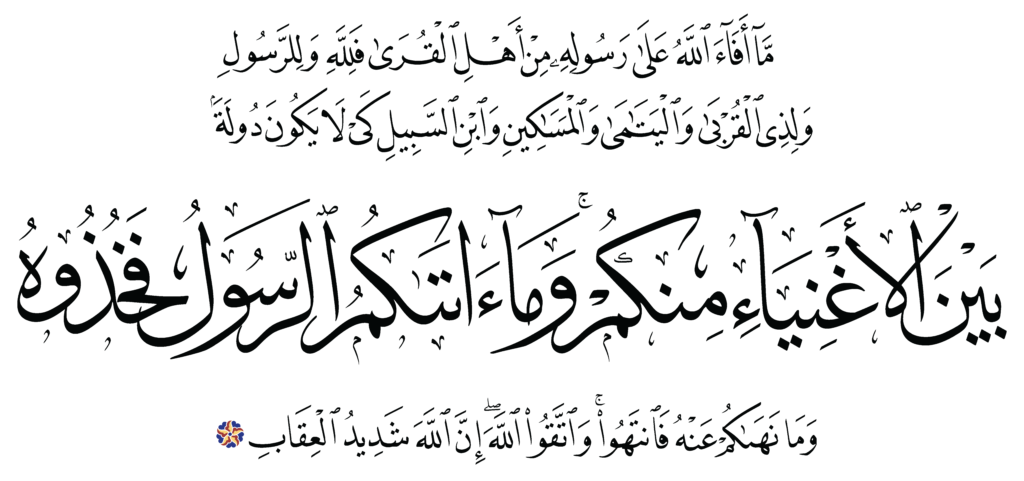 مَّآ أَفَآءَ ٱللَّهُ عَلَىٰ رَسُولِهِۦ مِنْ أَهْلِ ٱلْقُرَىٰ فَلِلَّهِ وَلِلرَّسُولِ
وَلِذِى ٱلْقُرْبَىٰ وَٱلْيَتَٰمَىٰ وَٱلْمَسَٰكِينِ وَٱبْنِ ٱلسَّبِيلِ كَىْ لَا يَكُونَ دُولَةًۢ
بَيْنَ ٱلْأَغْنِيَآءِ مِنكُمْ ۚ وَمَآ ءَاتَىٰكُمُ ٱلرَّسُولُ فَخُذُوهُ
وَمَا نَهَىٰكُمْ عَنْهُ فَٱنتَهُوا۟ ۚ وَٱتَّقُوا۟ ٱللَّهَ ۖ إِنَّ ٱللَّهَ شَدِيدُ ٱلْعِقَابِ